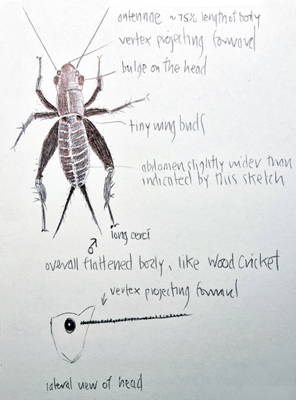 antennae ~75% length of body
vertex projecting forward
bulge on the head
tiny wing buds
abdomen slightly wider than
indicated by this sketch
long cerci
♂
overall flattened body, like Wood Cricket
vertex projecting forward
lateral view of head